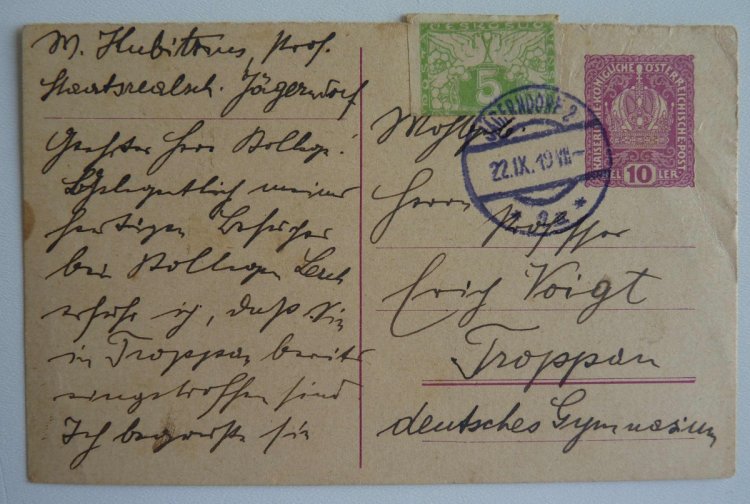 Prof.
Staatsrealsch. Jägerndorf
Geehrter Herr Kollege!
Gelegentlich meines
heutigen Besuches
bei Kollegen
erfuhr ich, daß Sie
in Troppau bereits
eingetroffen sind
Ich begrüße Sie
ČESKOSLO
5
KAISERLICHE KÖNIGLICHE ÖSTERREICHISCHE POST
HEL 10 LER
JÄGERNDORF 2
22.IX.19 VIII
Herrn Professor
Erich Voigt
Troppau
deutsches Gymnasium